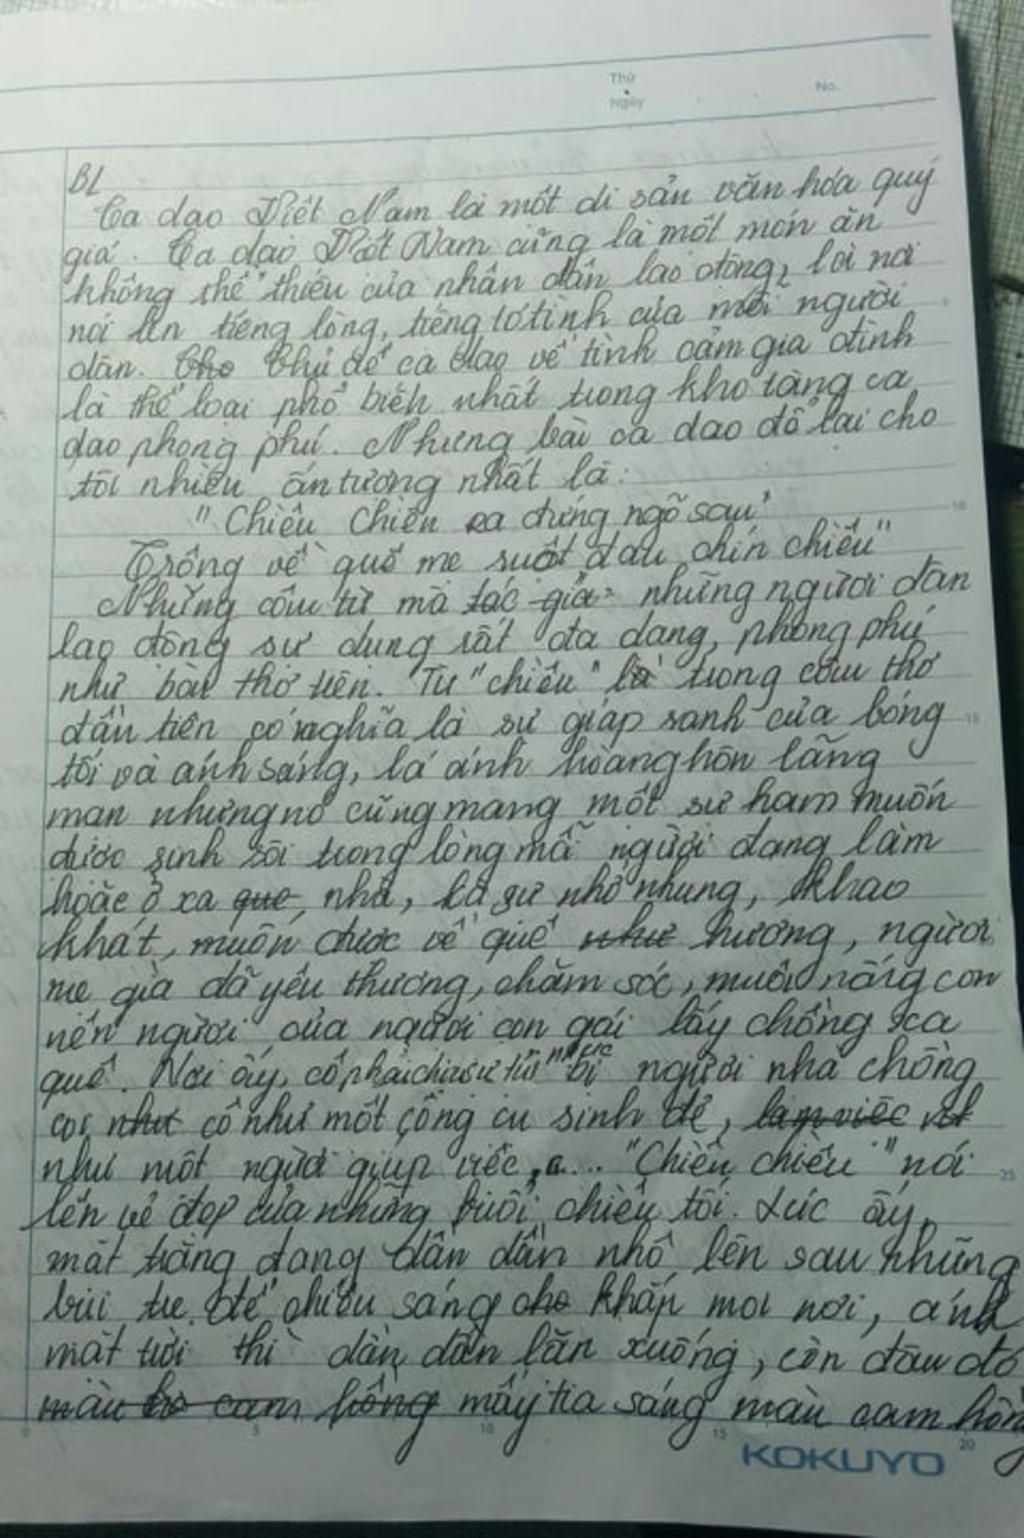 Thứ
Ngày
No.
BL
Ca dao Việt Nam là một di sản văn hóa quý
giá. Ca dao Việt Nam cũng là một món ăn
không thể thiếu của nhân dân lao động, lời nơi
nói lên tiếng lòng, tiếng tơ tình của mỗi người
dân. Cho Chủ đề ca dao về tình cảm gia đình
là thể loại phổ biến nhất trong kho tàng ca
dao phong phú. Nhưng bài ca dao đổ lại cho
tôi nhiều ấn tượng nhất là:
"Chiều Chiều ra đứng ngõ sau
Trông về quê mẹ ruột đau chín chiều"
Những câu từ mà tác giả những người dân
lao động sử dụng rất đa dạng, phong phú
như bài thơ trên. Từ "chiều" là trong câu thơ
đầu tiên có nghĩa là sự giáp ranh của bóng
tối và ánh sáng, là ánh hoàng hôn lãng
mạn nhưng nó cũng mang một sự ham muốn
được sinh sôi trong lòng mỗi người đang làm
hoặc ở xa quê, nhà, là sự nhớ nhung, khao
khát, muốn được về quê như hương, người
mẹ già đã yêu thương, chăm sóc, nuôi nấng con
nên người của người con gái lấy chồng xa
quê. Nơi ấy, cô phải chịu sự tủi bị người nhà chồng
coi như cô như một công cụ sinh đẻ, làm việc
như một người giúp việc, .... "Chiều chiều" nói
lên vẻ đẹp của những buổi chiều tối. Lúc ấy,
mặt trăng đang dần dần nhô lên sau những
bụi tre để chiếu sáng cho khắp mọi nơi, ánh
mặt trời thì dần dần lặn xuống, còn đâu đó
màu cam hồng mấy tia sáng màu cam hồng
10
15
25
0
5
10
15
20
KOKUYO